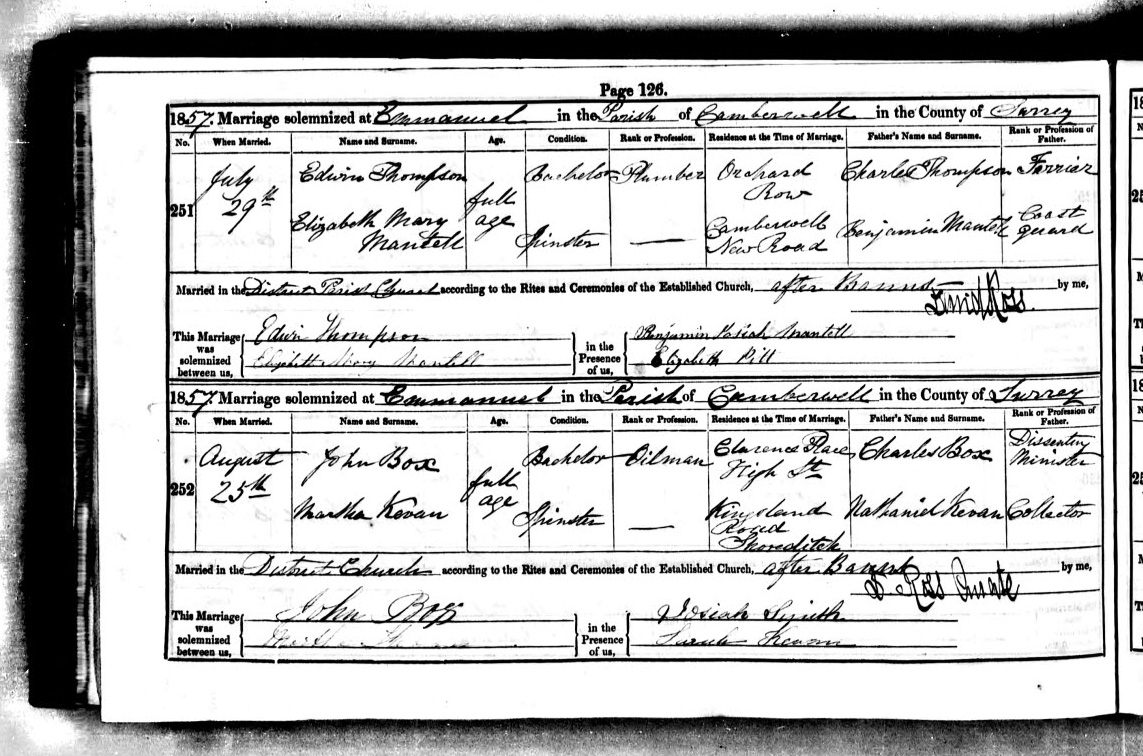 Page 126.
1857. Marriage solemnized at Emmanuel in the Parish of Camberwell in the County of Surrey
No. When Married. Name and Surname. Age. Condition. Rank or Profession. Residence at the Time of Marriage. Father's Name and Surname. Rank or Profession of Father.
251 July 29th Edwin Thompson full age Bachelor Plumber Orchard Row Charles Thompson Farrier
Elizabeth Mary Mantell Spinster — Camberwell New Road Benjamin Mantell Coast guard
Married in the District Parish Church according to the Rites and Ceremonies of the Established Church, after Banns by me,
David Ross.
This Marriage was solemnized between us, Edwin Thompson in the Presence of us, Benjamin Josiah Mantell
Elizabeth Mary Mantell Elizabeth Pill
1857 Marriage solemnized at Emmanuel in the Parish of Camberwell in the County of Surrey
No. When Married. Name and Surname. Age. Condition. Rank or Profession. Residence at the Time of Marriage. Father's Name and Surname. Rank or Profession of Father.
252 August 25th John Box full age Bachelor Oilman Clarence Place High St Charles Box Dissenting Minister
Martha Kevan Spinster — Kingsland Road Shoreditch Nathaniel Kevan Collector
Married in the District Church according to the Rites and Ceremonies of the Established Church, after Banns by me,
D. Ross Curate
This Marriage was solemnized between us, John Box in the Presence of us, Josiah Smith
Martha Sarah Kevan